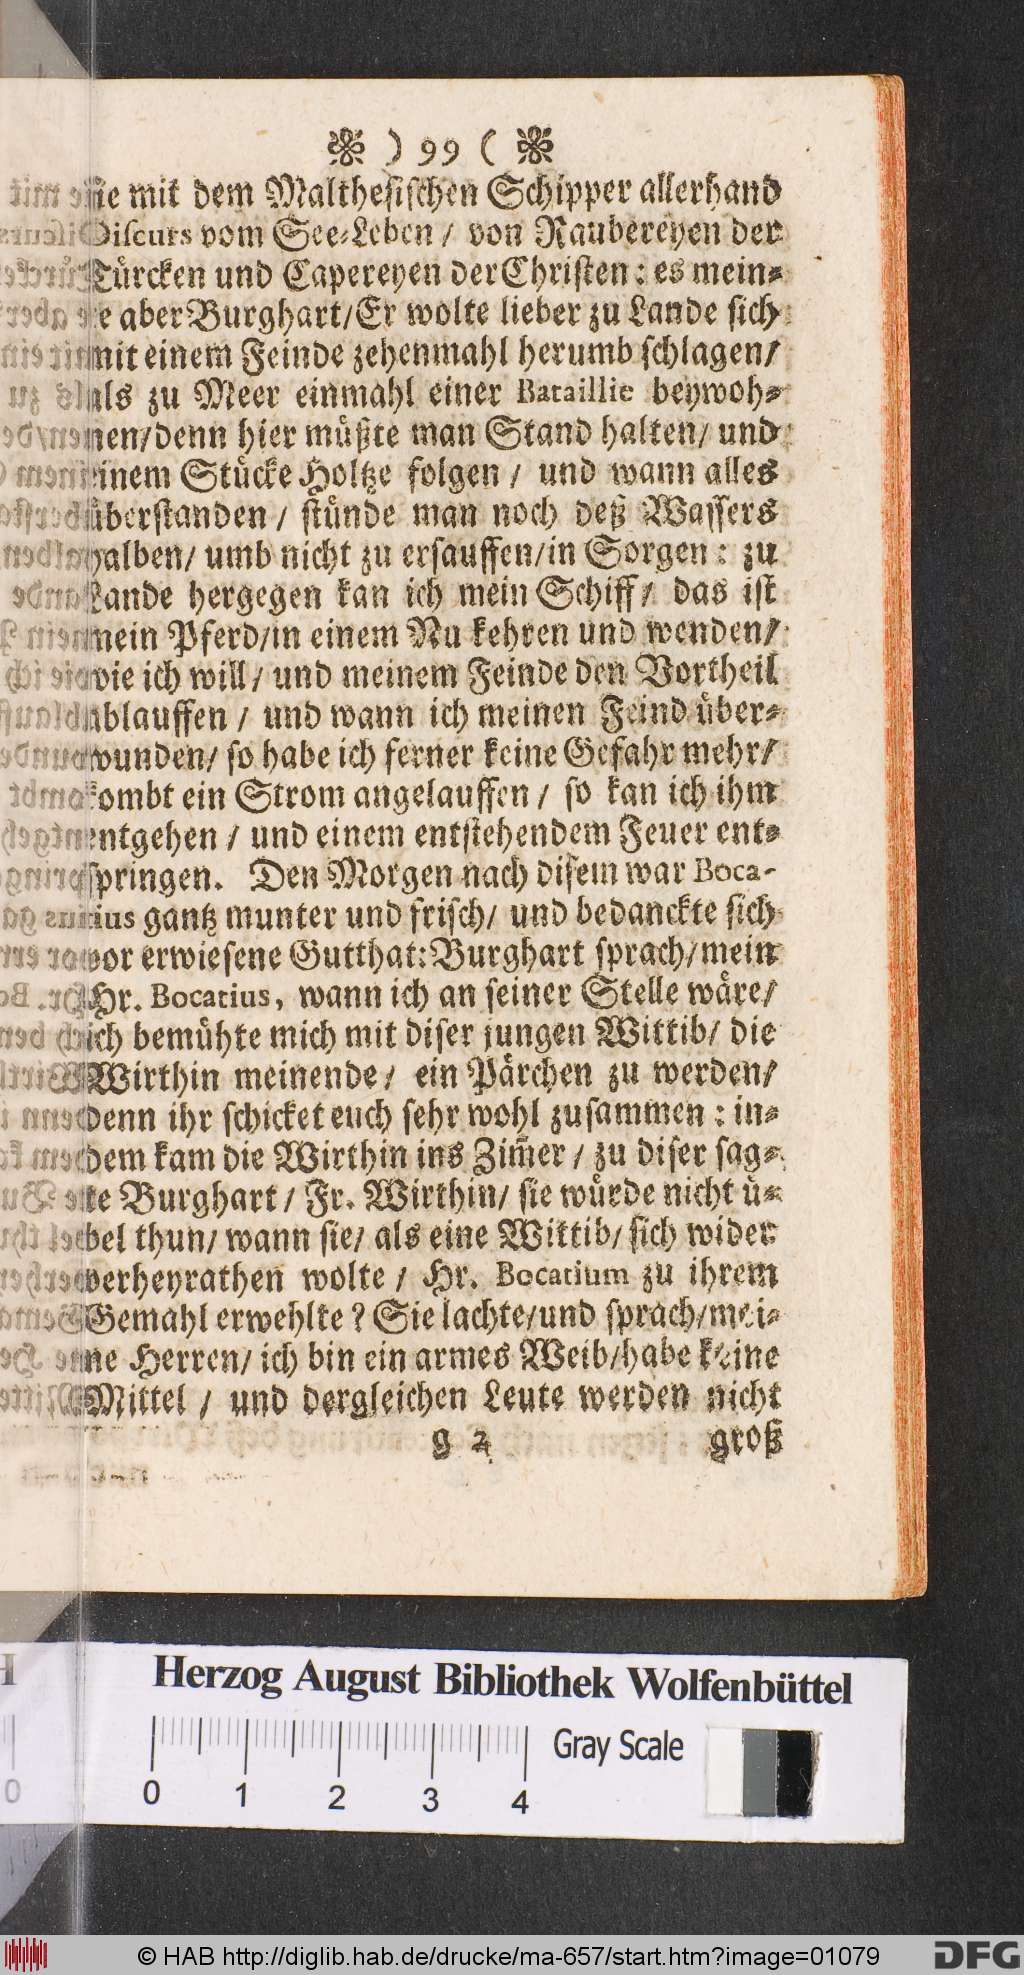 ) 99 (
sie mit dem Malthesischen Schipper allerhand
Discurs vom See-Leben / von Raubereyen der
Türcken und Capereyen der Christen: es mein-
te aber Burghart/Er wolte lieber zu Lande sich
mit einem Feinde zehenmahl herumb schlagen/
als zu Meer einmahl einer Bataillie beywoh-
nen/denn hier müßte man Stand halten/ und
einem Stücke Holtze folgen / und wann alles
überstanden / stünde man noch deß Wassers
halben/ umb nicht zu ersauffen/in Sorgen: zu
Lande hergegen kan ich mein Schiff/ das ist
mein Pferd/in einem Nu kehren und wenden/
wie ich will/ und meinem Feinde den Vortheil
ablauffen / und wann ich meinen Feind über-
wunden/ so habe ich ferner keine Gefahr mehr/
kombt ein Strom angelauffen / so kan ich ihm
entgehen / und einem entstehendem Feuer ent-
springen. Den Morgen nach disem war Boca-
tius gantz munter und frisch/ und bedanckte sich
vor erwiesene Gutthat: Burghart sprach/mein
Hr. Bocatius, wann ich an seiner Stelle wäre/
ich bemühte mich mit diser jungen Wittib/ die
Wirthin meinende/ ein Pärchen zu werden/
denn ihr schicket euch sehr wohl zusammen: in-
dem kam die Wirthin ins Zim̄er / zu diser sag-
te Burghart / Fr. Wirthin/ sie würde nicht ü-
bel thun/ wann sie/ als eine Wittib/ sich wider
verheyrathen wolte / Hr. Bocatium zu ihrem
Gemahl erwehlte? Sie lachte/und sprach/mei-
ne Herren/ ich bin ein armes Weib/habe keine
Mittel / und dergleichen Leute werden nicht
g 2 groß
Herzog August Bibliothek Wolfenbüttel
0 0 1 2 3 4 Gray Scale
© HAB http://diglib.hab.de/drucke/ma-657/start.htm?image=01079 DFG